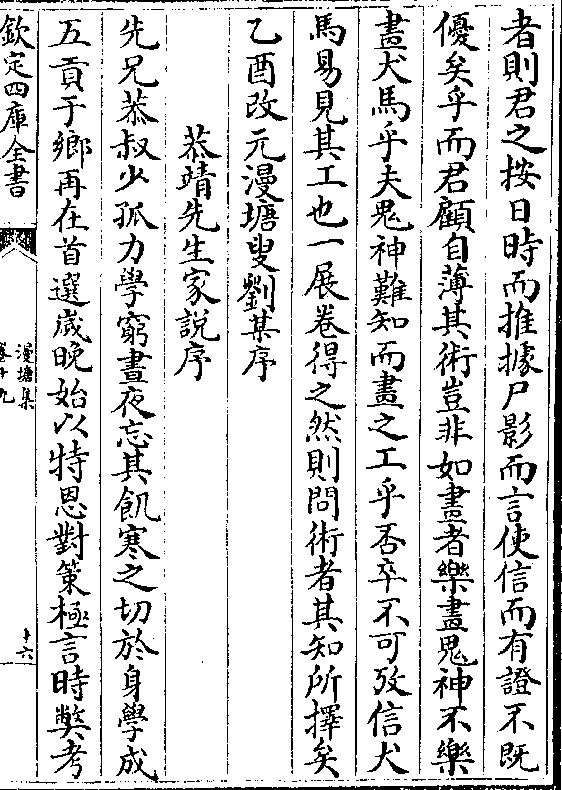 者則君之按日時而推據尸影而言使信而有證不既
優矣乎而君顧自薄其術豈非如畫者樂畫鬼神不樂
畫犬馬乎夫鬼神難知而畫之工乎否卒不可攷信犬
馬易見其工也一展卷得之然則問術者其知所擇矣
乙酉改元漫塘叟劉某序
恭靖先生家説序
先兄恭叔少孤力學窮晝夜忘其飢寒之切於身學成
五貢于鄉再在首選歲晚始以特恩對策極言時獘考
欽定四庫全書
漫塘集
卷十九
十六